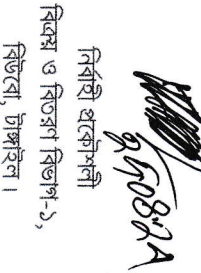 নির্বাহী প্রকৌশলী
বিক্রয় ও বিতরণ বিভাগ-১,
বিউবো, টাঙ্গাইল ।